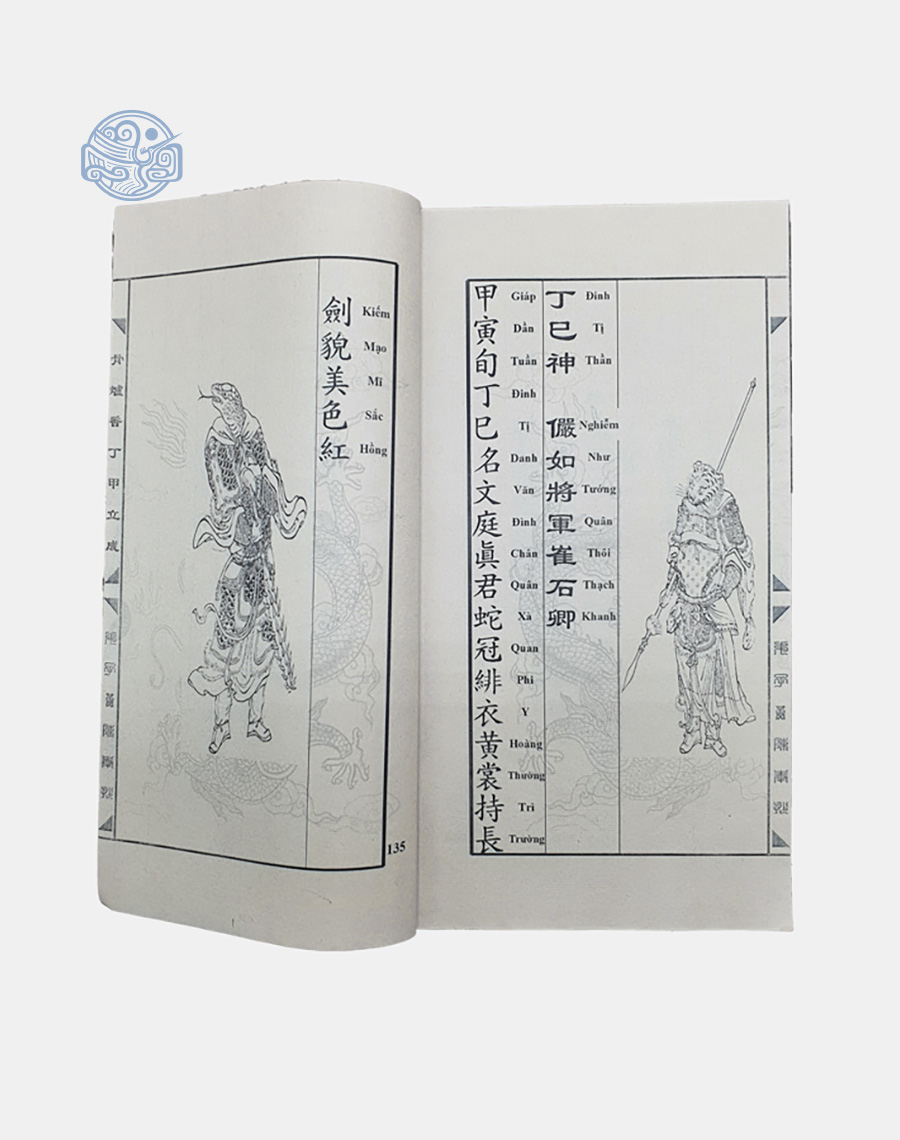 丁巳神 儼如將軍崔石卿
Đinh Tị Thần Nghiễm Như Tướng Quân Thôi Thạch Khanh
甲寅旬丁巳名文庭眞君蛇冠緋衣黃裳持長
Giáp Dần Tuần Đinh Tị Danh Văn Đình Chân Quân Xà Quan Phi Y Hoàng Thường Trì Trường
劍貌美色紅
Kiếm Mạo Mĩ Sắc Hồng
135
香丁甲立成